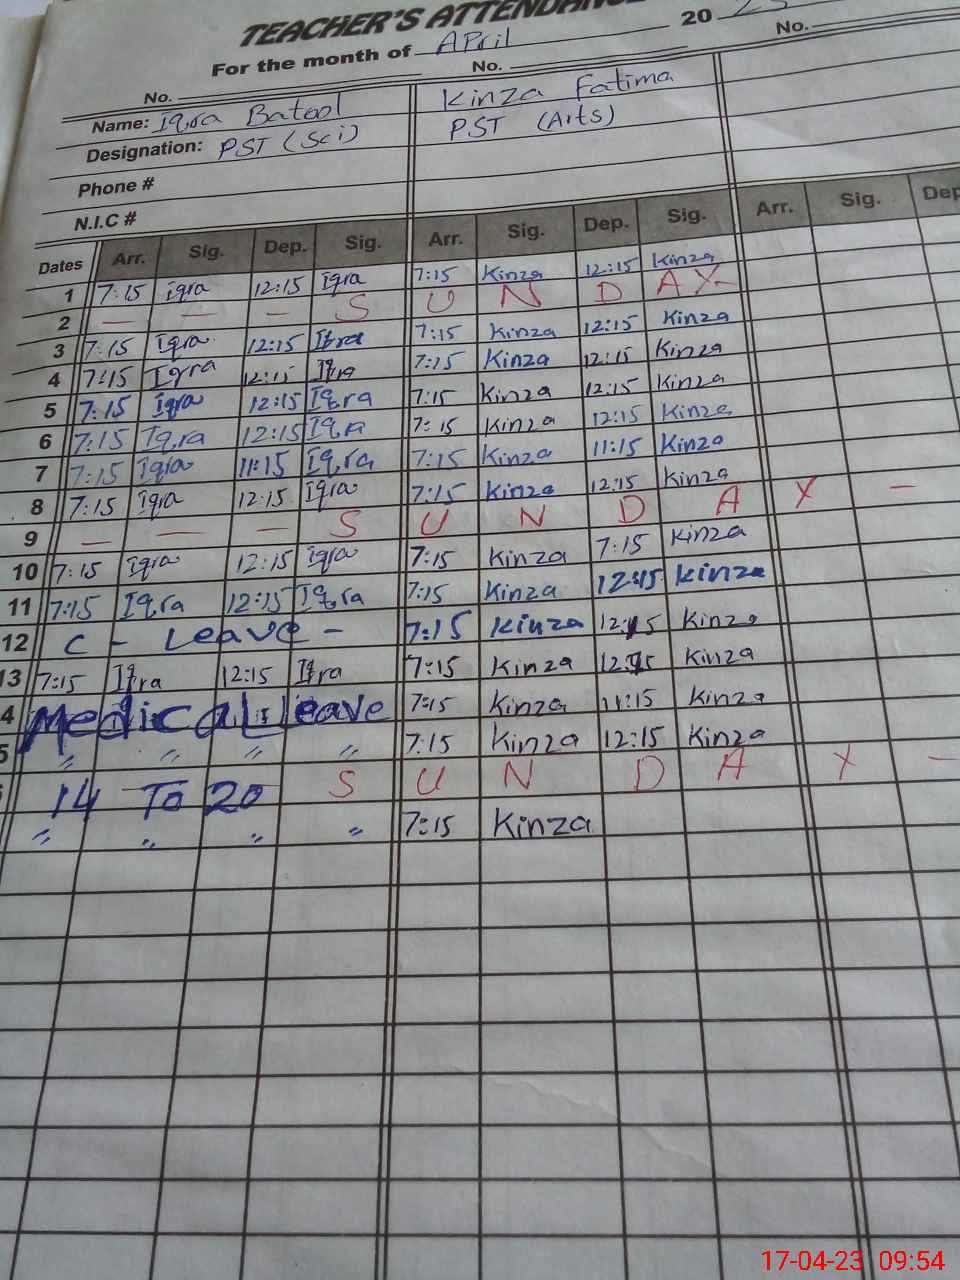 TEACHER'S ATTENDANCE
For the month of April 20 23
No. No. No.
Name: Iqra Batool Kinza Fatima
Designation: PST (Sci) PST (Arts)
Phone #
N.I.C #
Dates Arr. Sig. Dep. Sig. Arr. Sig. Dep. Sig. Arr. Sig. Dep
1 7:15 Iqra 12:15 Iqra 7:15 Kinza 12:15 Kinza
2 — — — S U N D A Y -
3 7:15 Iqra 12:15 Iqra 7:15 Kinza 12:15 Kinza
4 7:15 Iqra 12:15 Iqra 7:15 Kinza 12:15 Kinza
5 7:15 Iqra 12:15 Iqra 7:15 Kinza 12:15 Kinza
6 7:15 Iqra 12:15 Iqra 7:15 Kinza 12:15 Kinza
7 7:15 Iqra 11:15 Iqra 7:15 Kinza 11:15 Kinza
8 7:15 Iqra 12:15 Iqra 7:15 Kinza 12:15 Kinza
9 — — — S U N D A Y —
10 7:15 Iqra 12:15 Iqra 7:15 Kinza 7:15 Kinza
11 7:15 Iqra 12:15 Iqra 7:15 Kinza 12:15 Kinza
12 C - Leave - 7:15 Kinza 12:15 Kinza
13 7:15 Iqra 12:15 Iqra 7:15 Kinza 12:15 Kinza
4 Medical Leave 7:15 Kinza 11:15 Kinza
5 " " " " 7:15 Kinza 12:15 Kinza
14 To 20 S U N D A Y —
" " " " 7:15 Kinza
17-04-23 09:54